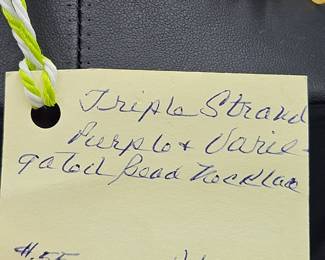 Triple Strand
Purple + Varie-
gated Bead Necklace
#.55